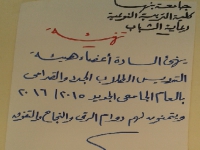 جامعة بنها
كلية التربية النوعية
رعاية الشباب
تهنئة
يهنئ السادة أعضاء هيئة
التدريس الطلاب الجدد والقدامى
بالعام الجامعى الجديد ٢٠١٥ / ٢٠١٦
ويتمنون لهم دوام الرقى والنجاح والتفوق